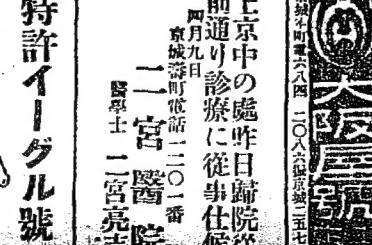 大阪屋號
城本町電六八四 二〇八六振京城二五七
上京中の處昨日歸院從
前通り診療に從事仕候
四月九日
京城壽町電話一二〇一番
二宮醫院
醫學士 二宮亮
特許イーグル號